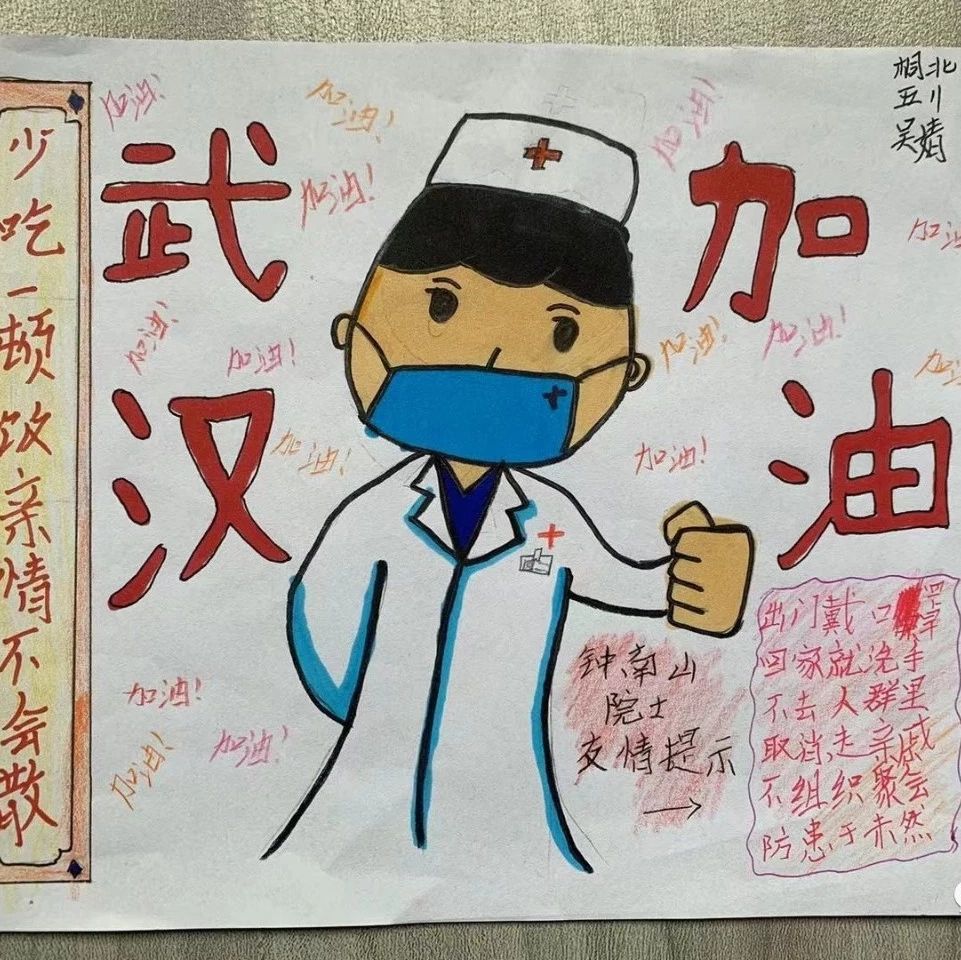 少吃一顿饭亲情不会散
武汉
加油
相北
五川
吴婧
加油!
加油!
加油!
加油!
加油
加油!
加油!
加油!
加油!
加油
加油!
加油!
加油!
加油!
加油!
钟南山
院士
友情提示
出门戴口罩
回家就洗手
不去人群里
取消走亲戚
不组织聚会
防患于未然